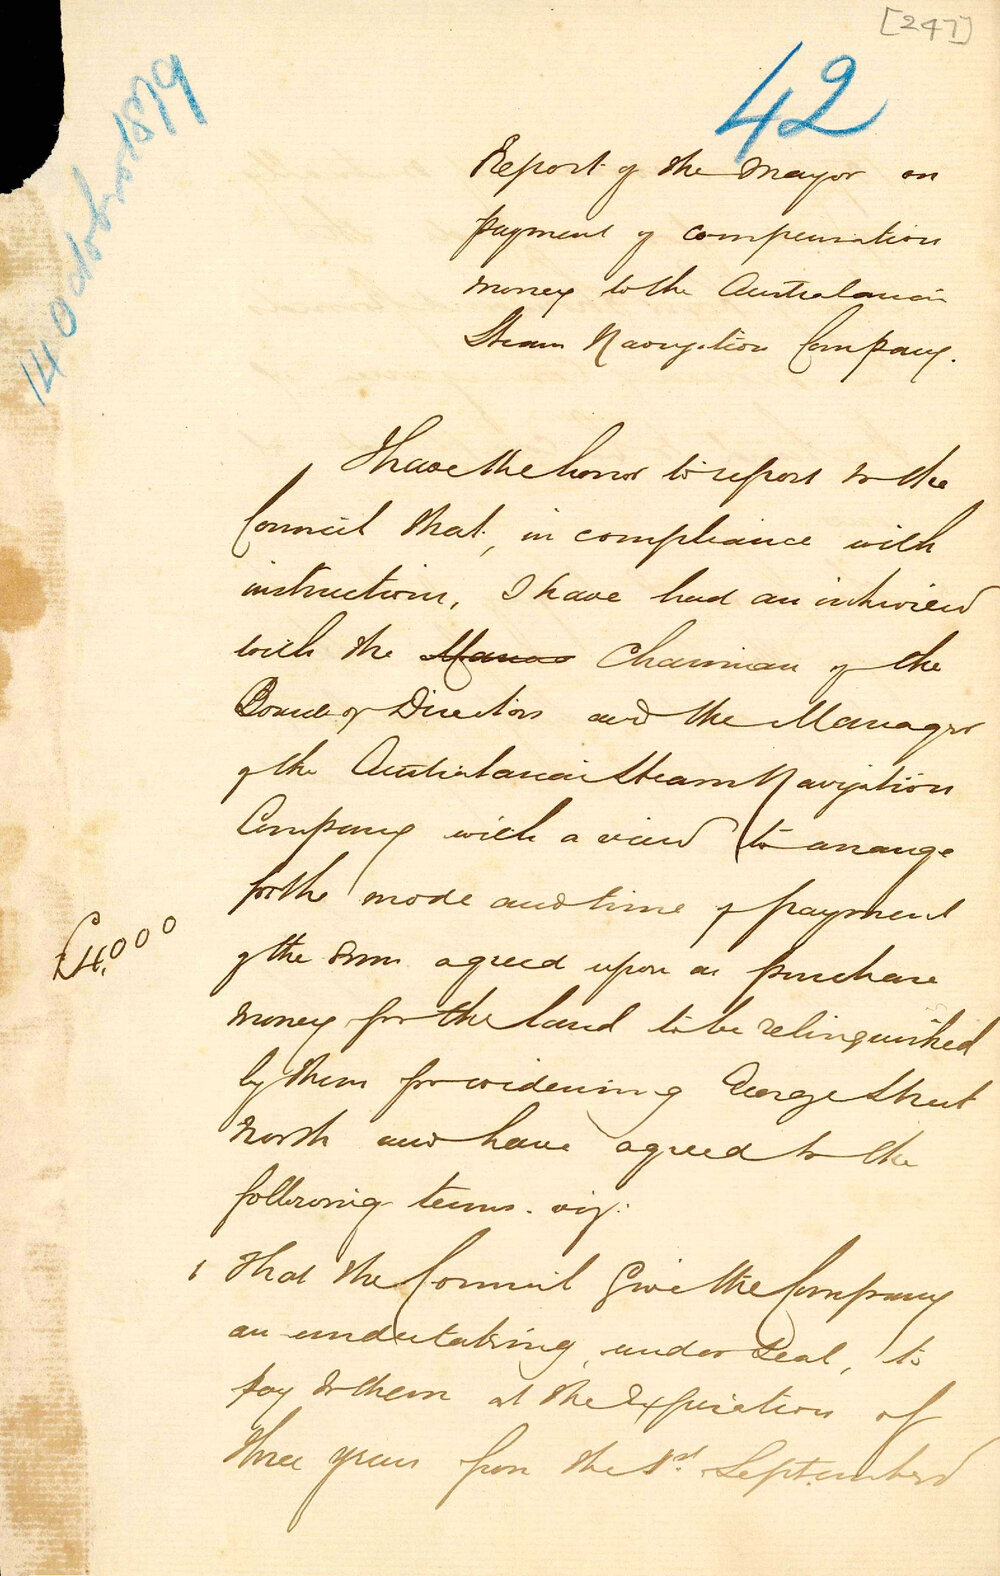 [247]
42
Report of the Mayor on
payment of compensation
money to the Australasian
Steam Navigation Company.
I have the honor to report to the
Council that, in compliance with
instructions, I have had an interview
with the Chairman of the
Board of Directors and the Manager
of the Australasian Steam Navigation
Company with a view to arrange
for the mode and time of payment
£4,000
of the sum agreed upon as purchase
money for the land to be relinquished
by them for widening George Street
North and have agreed to the
following terms. viz:
1 That the Council Give the Company
an undertaking, under Seal, to
pay to them at the expiration of
three years from the 1st. September